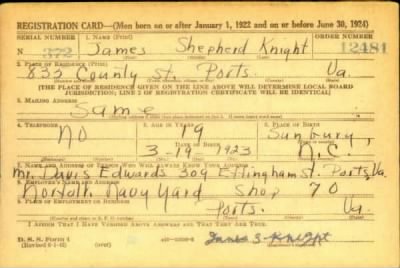 REGISTRATION CARD—(Men born on or after January 1, 1922 and on or before June 30, 1924)
SERIAL NUMBER 1. NAME (Print) ORDER NUMBER
N 372 James Shepherd Knight 12481
(First) (Middle) (Last)
2. PLACE OF RESIDENCE (Print)
832 County St. Ports. Va.
[THE PLACE OF RESIDENCE GIVEN ON THE LINE ABOVE WILL DETERMINE LOCAL BOARD
JURISDICTION; LINE 2 OF REGISTRATION CERTIFICATE WILL BE IDENTICAL]
3. MAILING ADDRESS
Same
4. TELEPHONE 5. AGE IN YEARS 6. PLACE OF BIRTH
NO 19 Sunbury,
DATE OF BIRTH
3-19-1923 N.C.
7. NAME AND ADDRESS OF PERSON WHO WILL ALWAYS KNOW YOUR ADDRESS
Mr. Davis Edwards 309 Effingham St. Ports, Va.
8. EMPLOYER'S NAME AND ADDRESS
Norfolk Navy Yard Shop 70
Ports. Va.
I AFFIRM THAT I HAVE VERIFIED ABOVE ANSWERS AND THAT THEY ARE TRUE.
D. S. S. Form 1
(Revised 6-1-42) James S. Knight